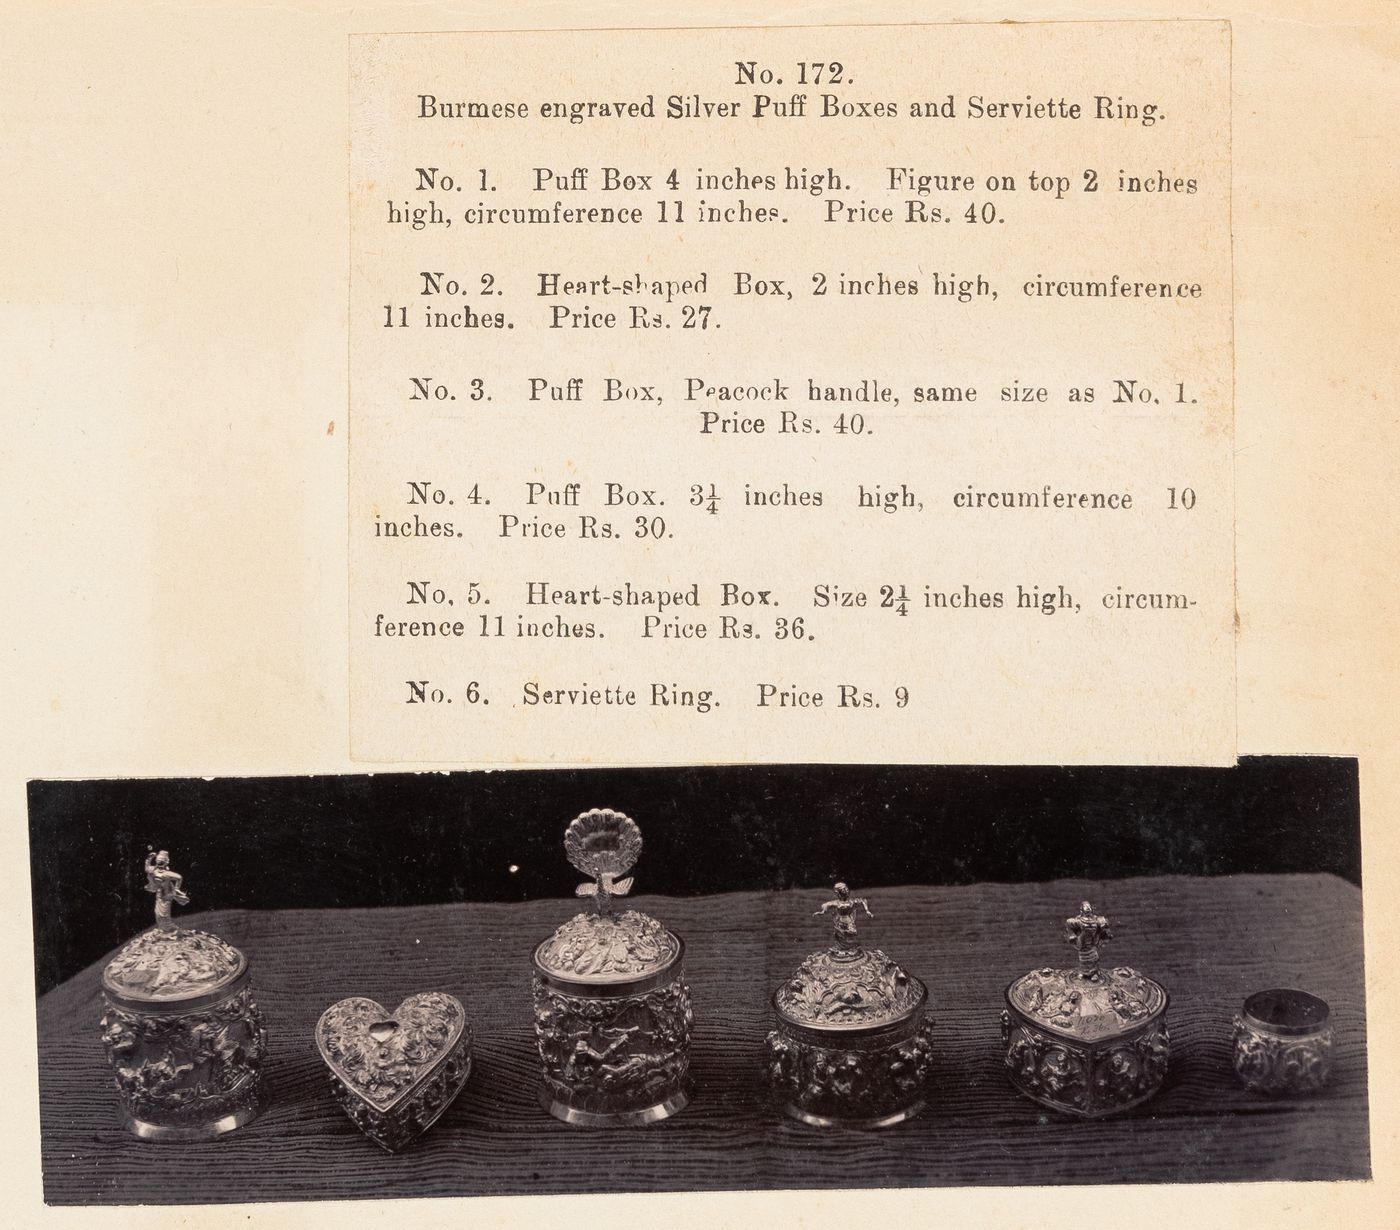 No. 172.
Burmese engraved Silver Puff Boxes and Serviette Ring.
No. 1. Puff Box 4 inches high. Figure on top 2 inches
high, circumference 11 inches. Price Rs. 40.
No. 2. Heart-shaped Box, 2 inches high, circumference
11 inches. Price Rs. 27.
No. 3. Puff Box, Peacock handle, same size as No. 1.
Price Rs. 40.
No. 4. Puff Box. 3¼ inches high, circumference 10
inches. Price Rs. 30.
No. 5. Heart-shaped Box. Size 2¼ inches high, circum-
ference 11 inches. Price Rs. 36.
No. 6. Serviette Ring. Price Rs. 9